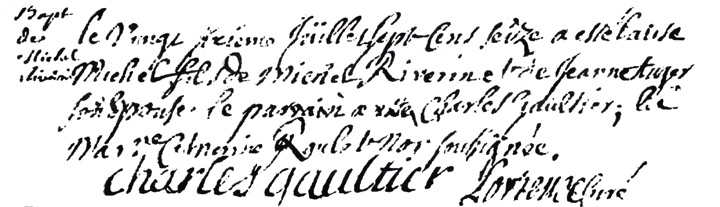 Bapt
de
Michel
Riverin
le Vingt sixieme Juillet sept Cens seize a esté Causé
Michel fils de Michel Riverin et de Jeanne
son Epouse le parrain a esté Charles Gaultier, la
Mar.ne Catherine soussignée.
Charles gaultier Curé